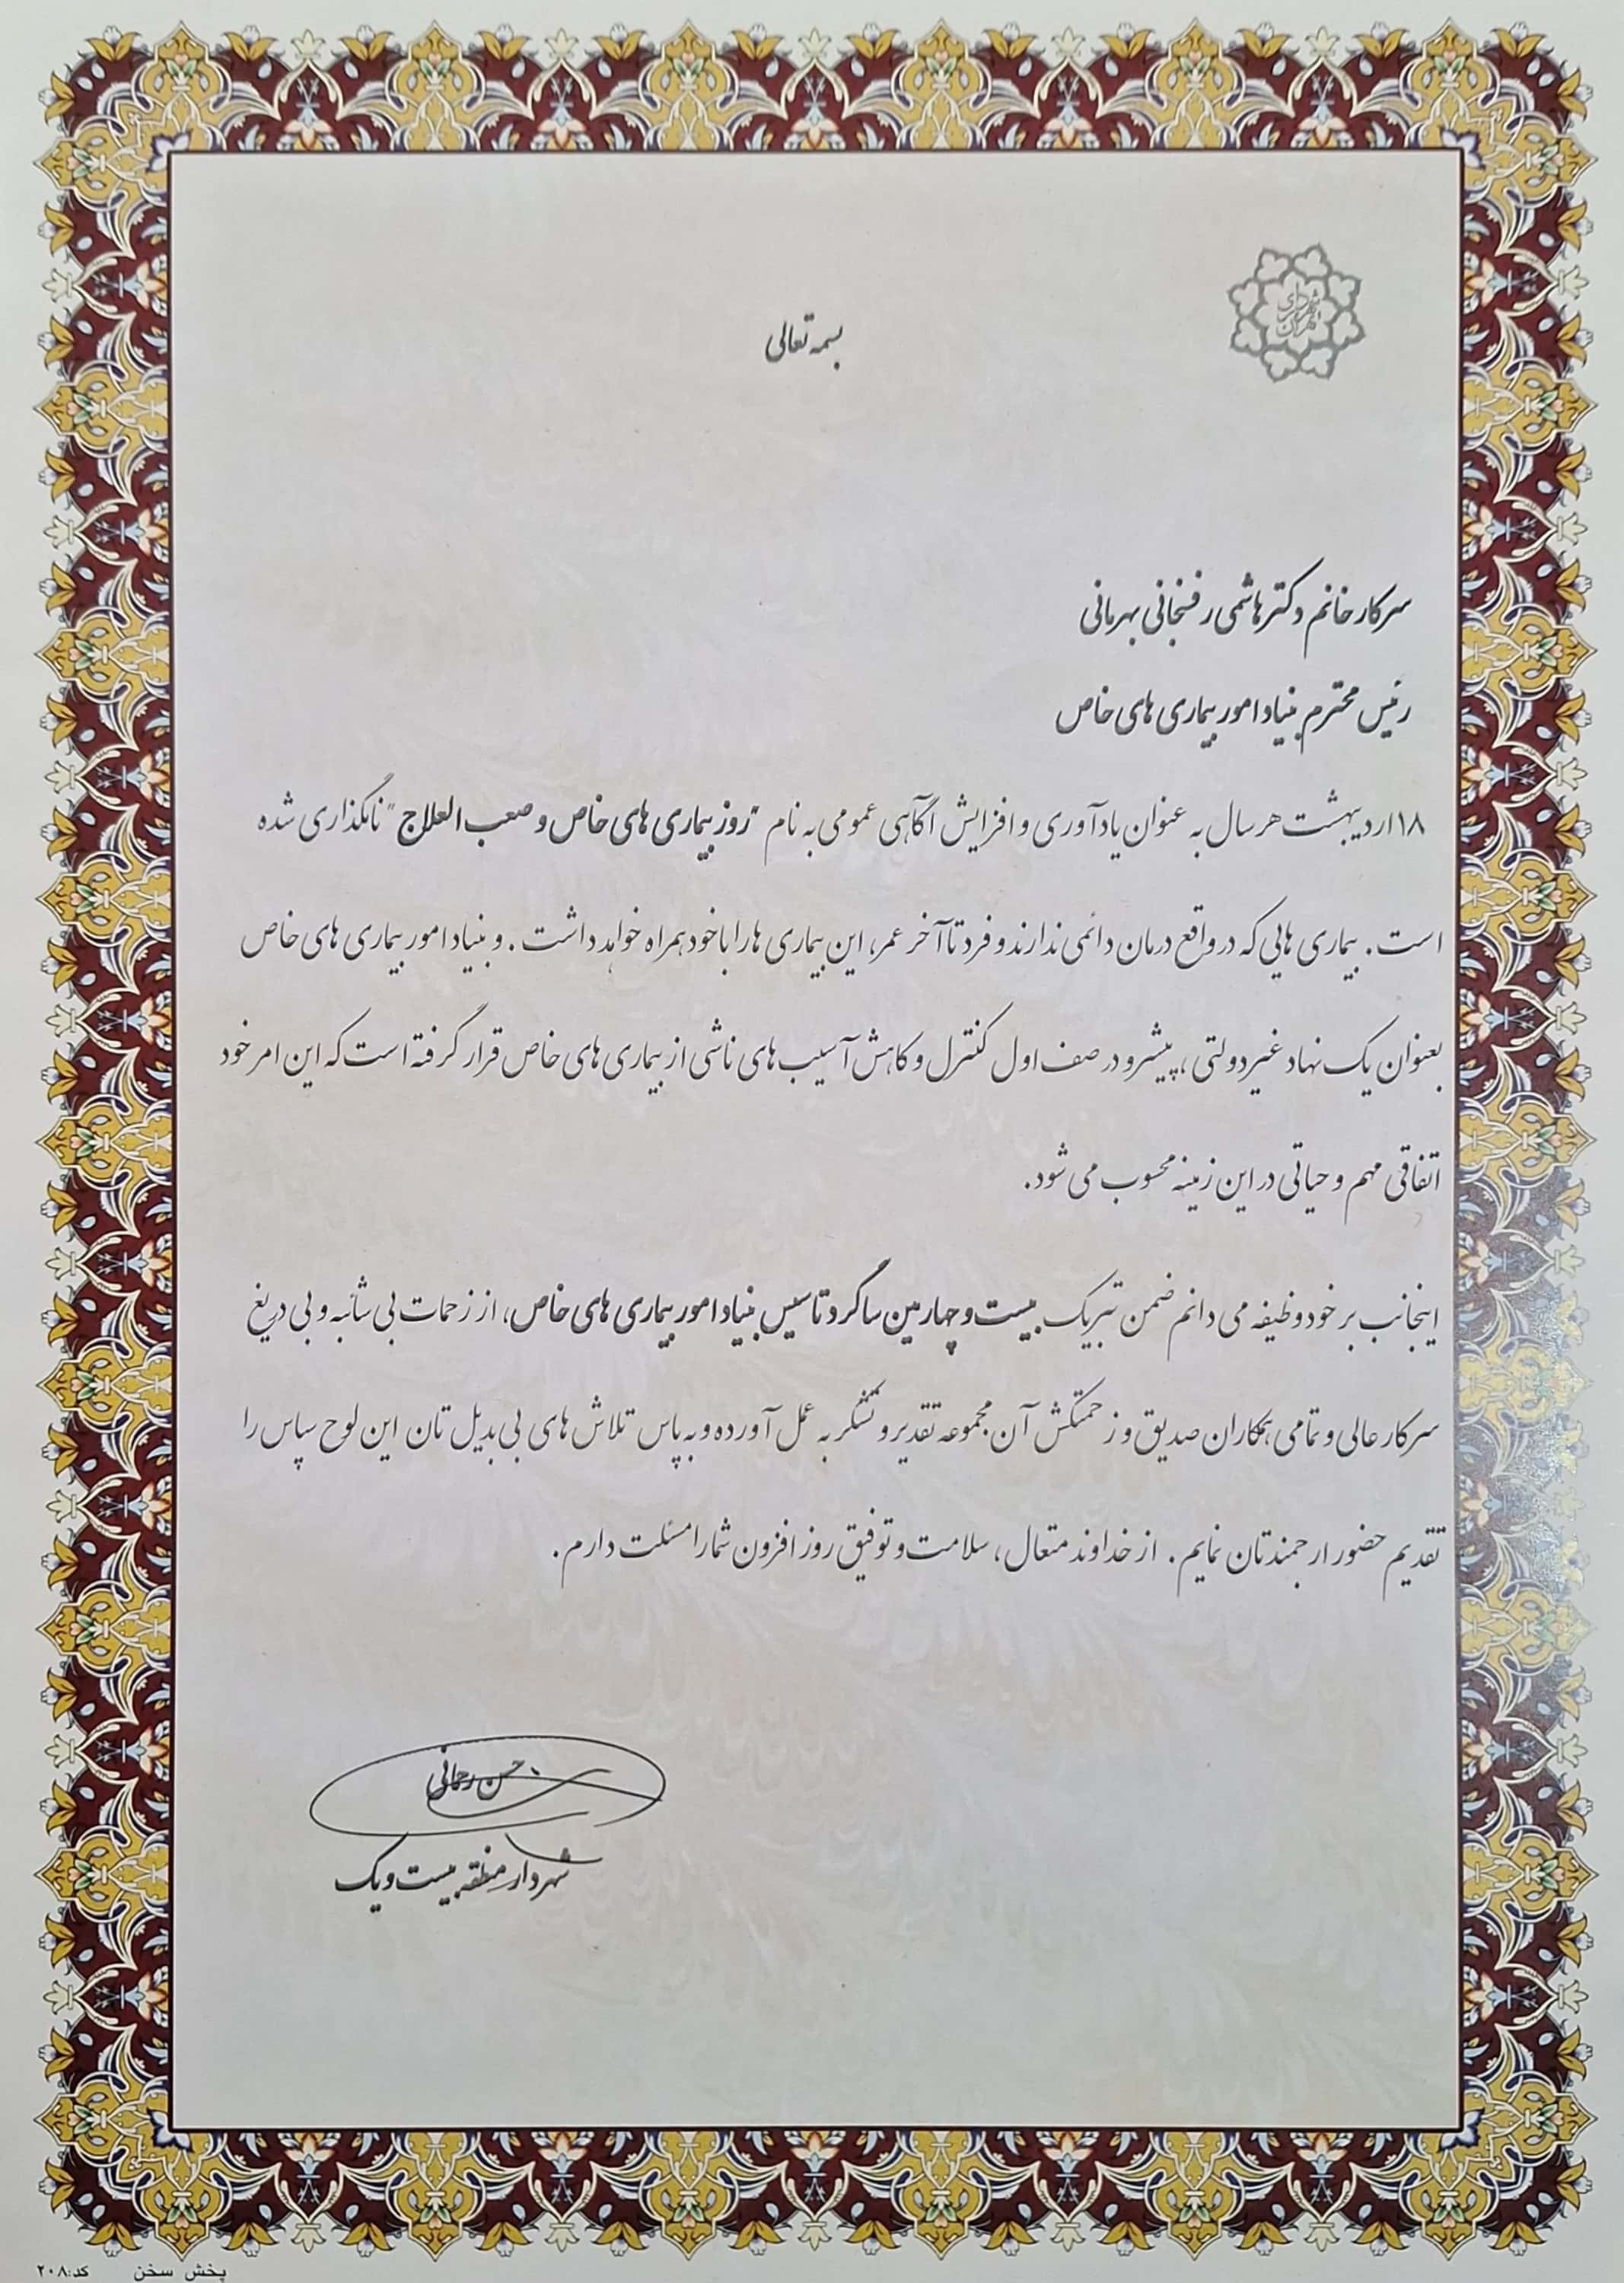 شهرداری تهران
بسمه تعالی
سرکار خانم دکتر هاشمی رفسنجانی بهرمانی
رئیس محترم بنیاد امور بیماری های خاص
۱۸ اردیبهشت هر سال به عنوان یادآوری و افزایش آگاهی عمومی به نام "روز بیماری های خاص و صعب العلاج" نامگذاری شده
است. بیماری هایی که در واقع درمان دائمی ندارند و فرد تا آخر عمر، این بیماری ها را با خود همراه خواهد داشت. و بنیاد امور بیماری های خاص
بعنوان یک نهاد غیردولتی، پیشرو در صف اول کنترل و کاهش آسیب های ناشی از بیماری های خاص قرار گرفته است که این امر خود
اتفاقی مهم و حیاتی در این زمینه محسوب می شود.
اینجانب بر خود وظیفه می دانم ضمن تبریک بیست و چهارمین سالگرد تاسیس بنیاد امور بیماری های خاص، از زحمات بی شائبه و بی دریغ
سرکار عالی و تمامی همکاران صدیق و زحمتکش آن مجموعه تقدیر و تشکر به عمل آورده و به پاس تلاش های بی بدیل تان این لوح سپاس را
تقدیم حضور ارجمندتان نمایم. از خداوند متعال، سلامت و توفیق روز افزون شما را مسئلت دارم.
حسن رحمانی
شهردار منطقه بیست و یک
پخش سخن کد:۲۰۸